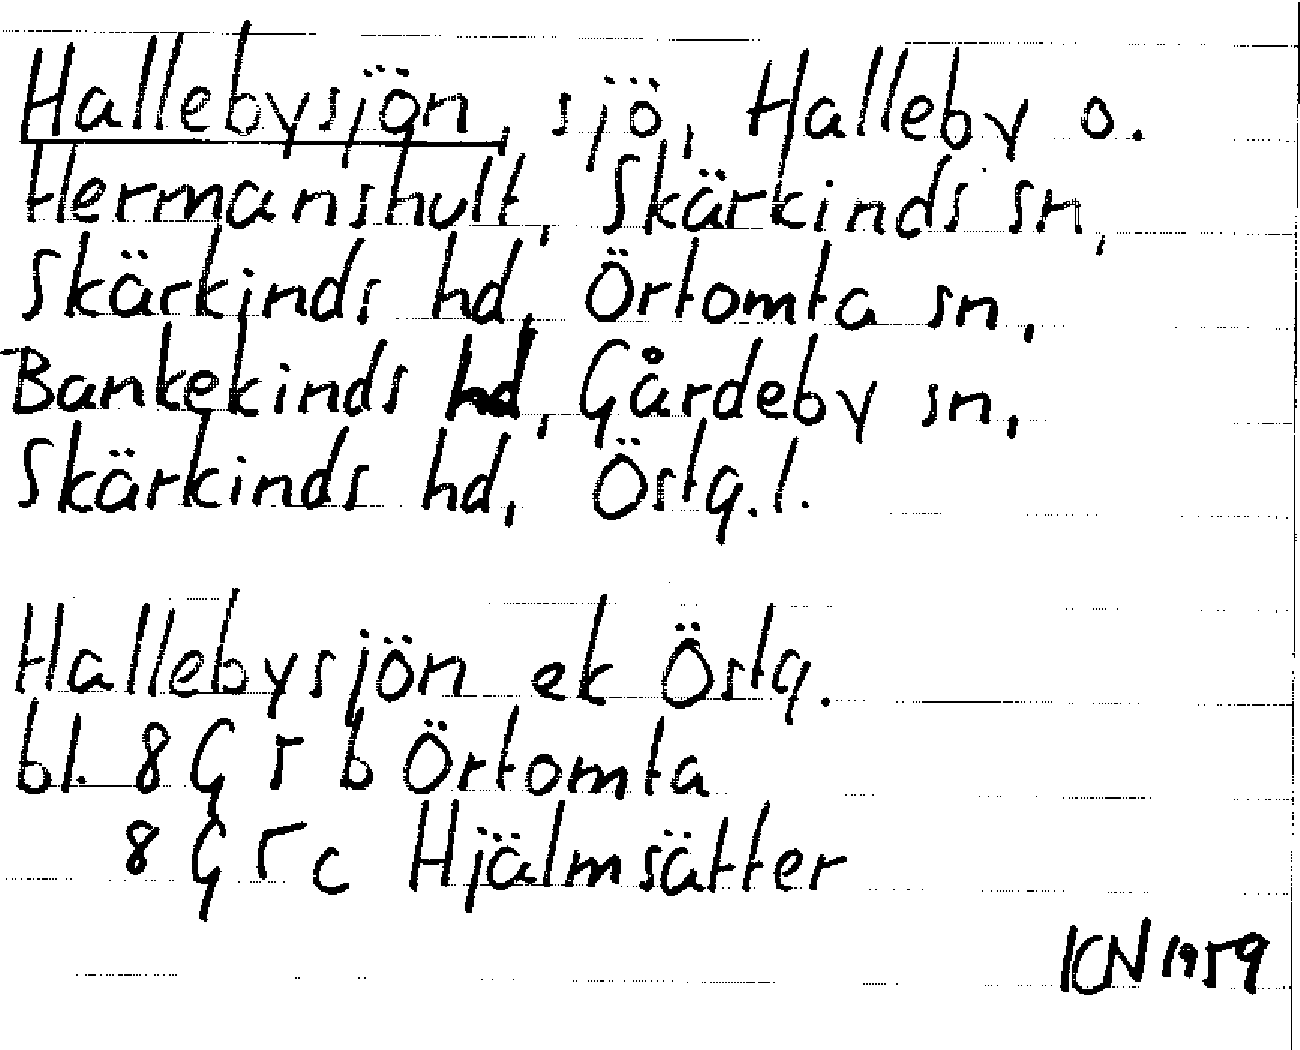 Hallebysjön, sjö, Halleby o.
Hermanshult, Skärkinds sn,
Skärkinds hd, Örtomta sn,
Bankekinds hd, Gårdeby sn,
Skärkinds hd, Östg.l.
Hallebysjön ek Östg.
bl. 8G 5 b Örtomta
8G 5 c Hjälmsätter
ICN 1959